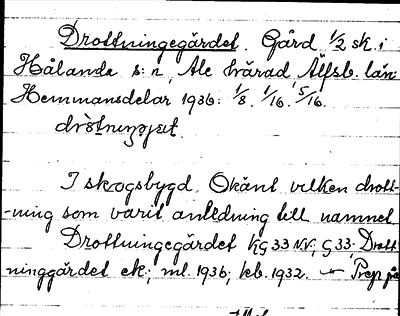 Drottningegärdet. Gård 1/2 sk. i
Hålanda s:n, Ale härad, Älfsb. län
Hemmansdelar 1936: 1/8. 1/16. 5/16.
I skogsbygd. Okänt vilken drott-
-ning som varit anledning till namnet
Drottningegärdet KG 33 NV, G 33. Drott
ninggärdet ek; ml. 1936; kb. 1932. Prep på